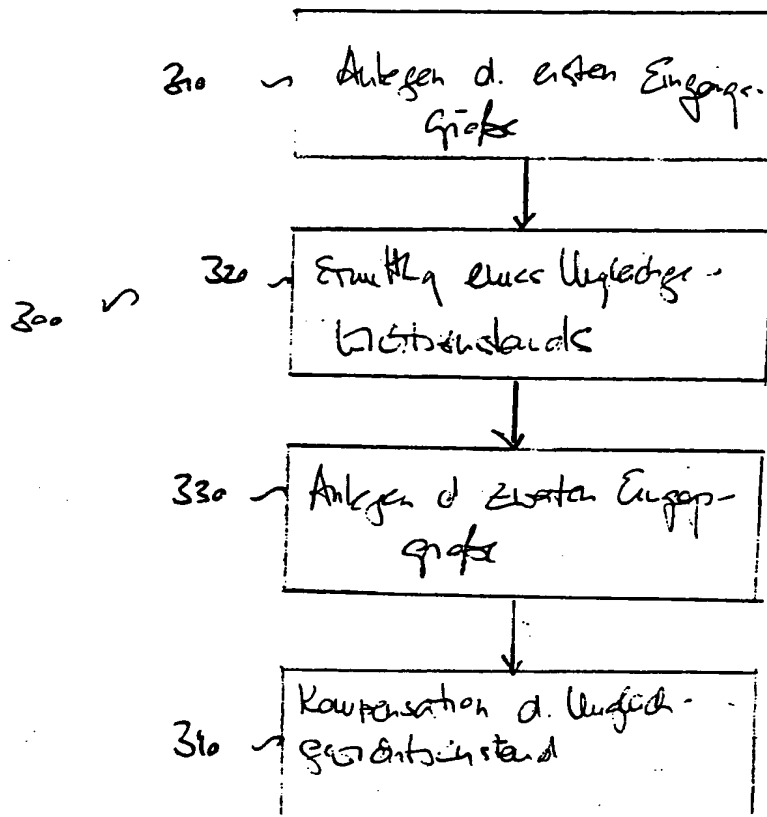 310 Anlegen d. ersten Eingangs-
größe
300
320 Ermittlg eines Ungleichge-
wichtszustands
330 Anlegen d zweiten Eingangs-
größe
340 Kompensation d. Ungleich-
gewichtszustand